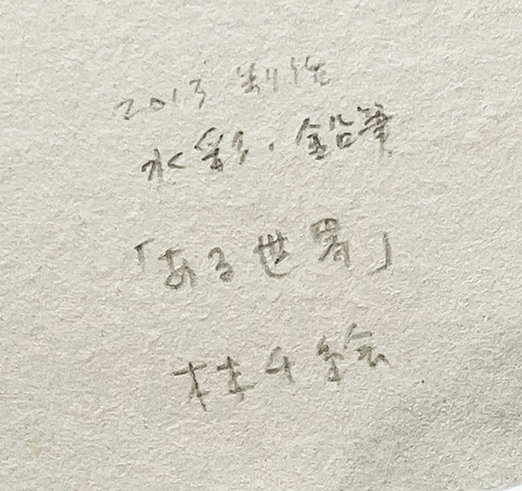 2013 制作
水彩、鉛筆
「ある世界」
林千絵